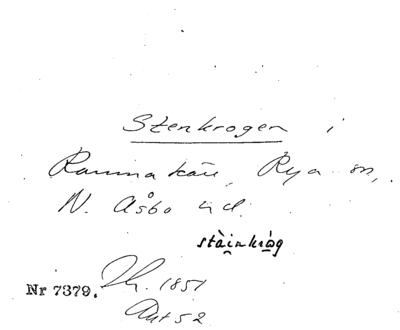 Stenkrogen i
Ramnakärr, Rya sn,
N. Åsbo hd.
stàinkròg
Nr 7379.
1851
Akt 52